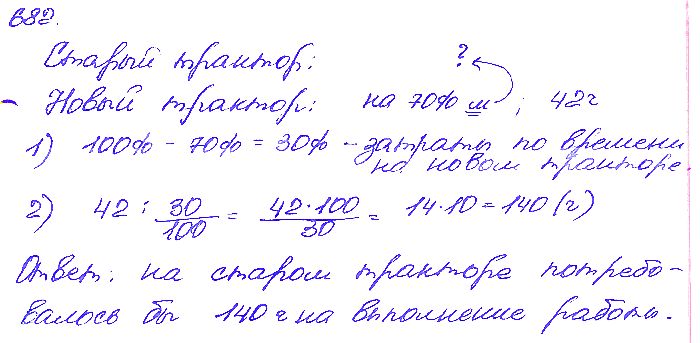 682.
Старый трактор: ?
- Новый трактор: на 70% м ; 42ч
1) 100% - 70% = 30% - затраты по времени
на новом тракторе.
2) 42 : 30/100 = 42·100/30 = 14·10 = 140 (ч)
Ответ: на старом тракторе потребо-
валось бы 140 ч на выполнение работы.